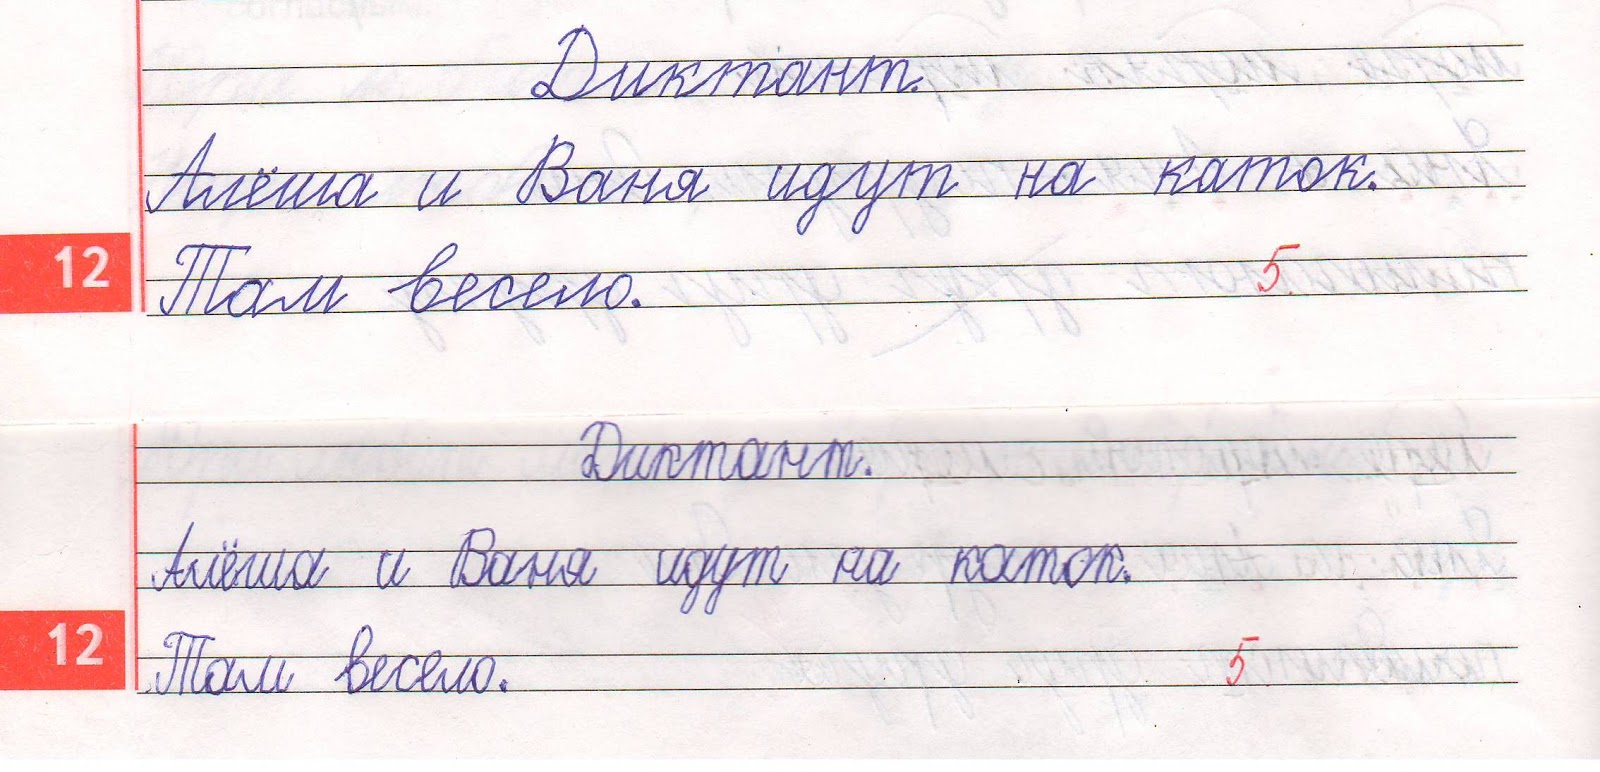 Диктант.
Алёша и Ваня идут на каток.
12 Там весело. 5
Диктант.
Алёша и Ваня идут на каток.
12 Там весело. 5